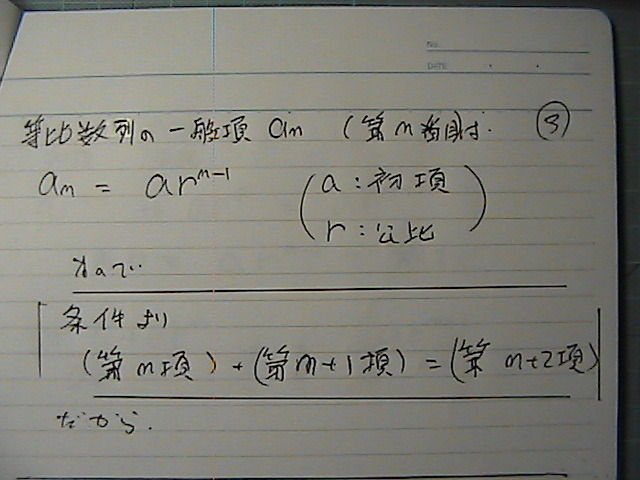 No.
DATE ・ ・
等比数列の一般項 an (第n番目は. ③
an = ar^n-1 (a:初項
r:公比)
なので
条件より
(第n項)+(第n+1項)=(第n+2項)
だから.